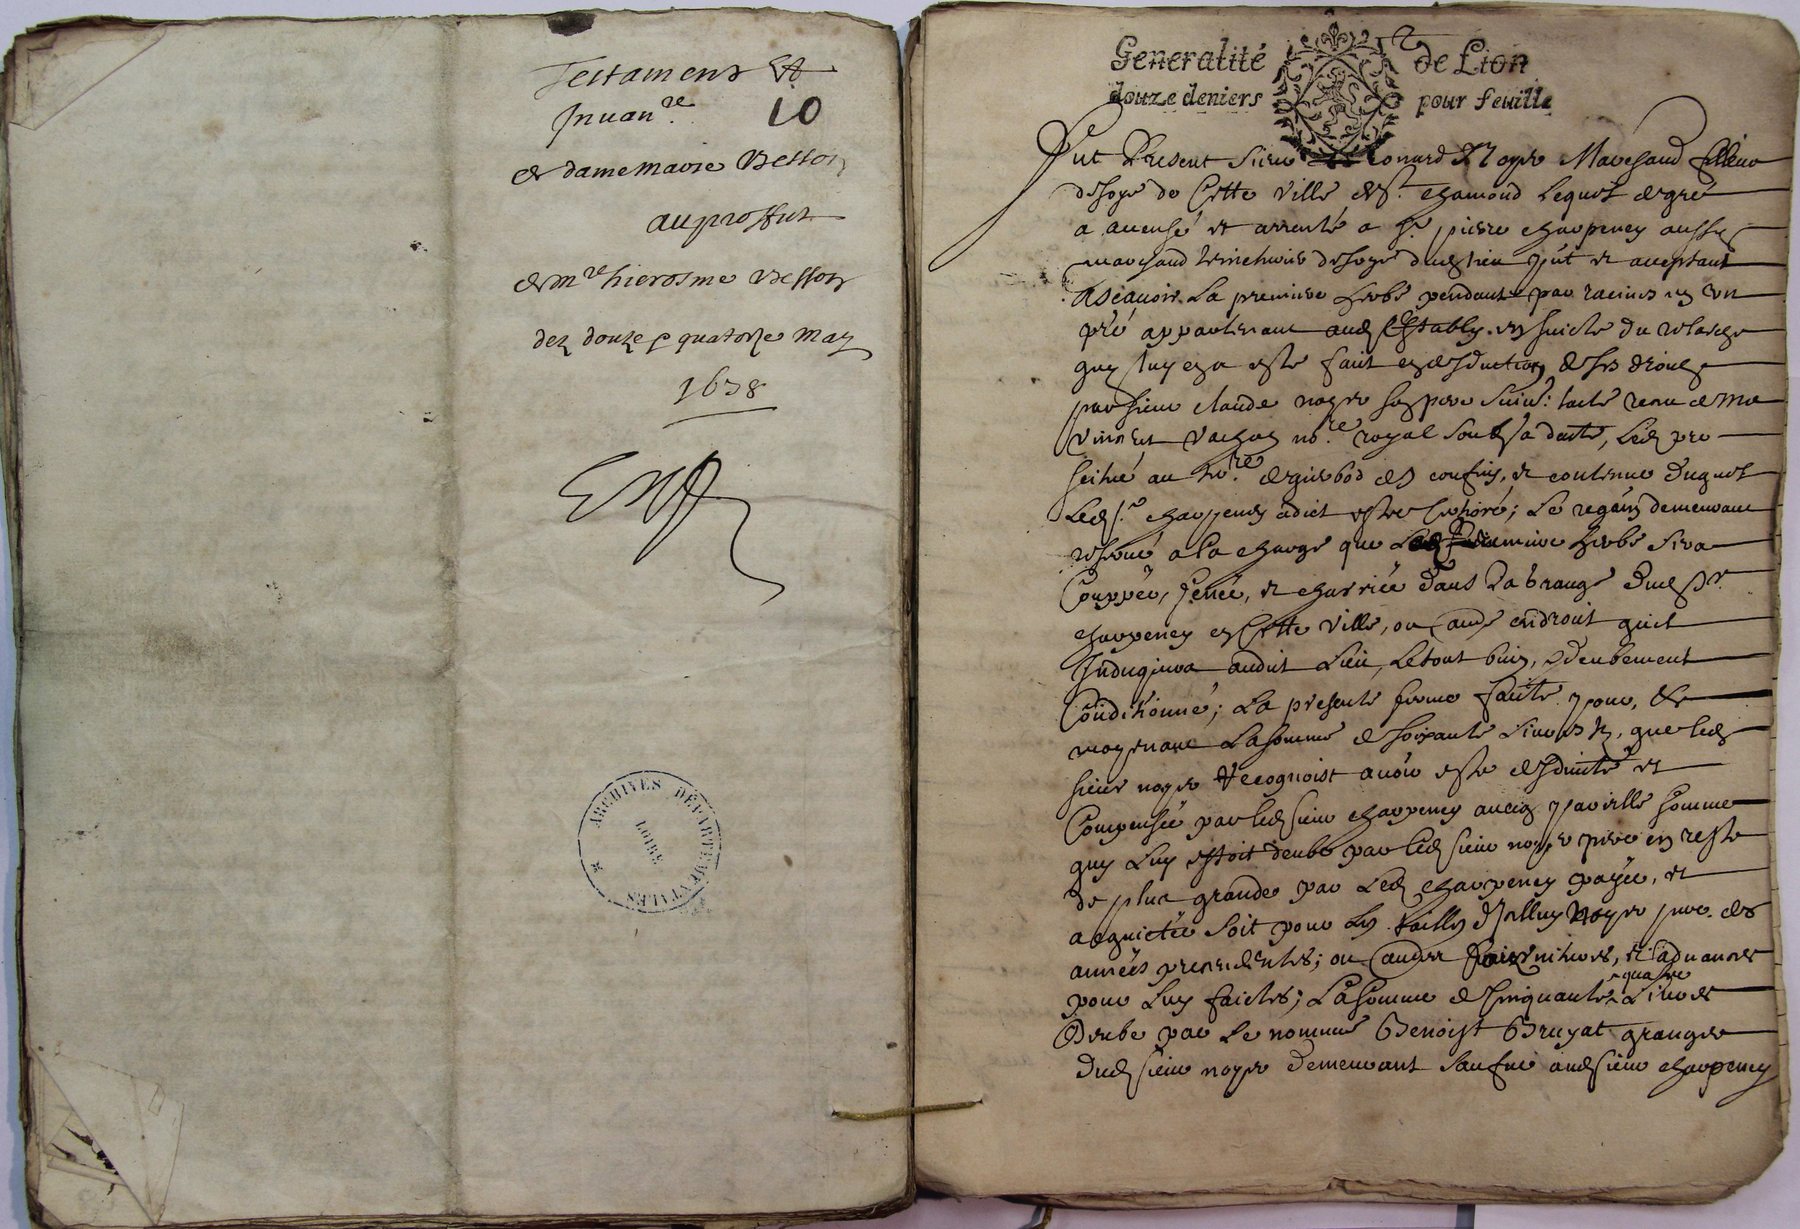 Testament &
Inuan.re 10
de dame marie Besson
au proffit
de m.re hierosme Besson
des douze & quatorze may
1638
ARCHIVES DÉPARTEMENTALES
LOIRE
Generalité de Lion
douze deniers pour feuille
Fut Present sieur Leonard Noyer Marchand filleur
de soye de Cette ville de St. chamond lequel de gré
a accensé et arrenté a Sr. pierre charpeney aussy
marchand de soye dud lieu pnt et acceptant
Asçauoir La premiere herbe pendante par racines en un
pré appartenant ensuicte du relasche
quy luy en a esté faict en desduction de ses droicts
par sieur claude noyer son pere suiu: lacte receu de Me
vincent vachon no.re royal soub sa datte, led pré
scitué au de ses confins, et contenue duquel
led Sr. charpeney a dict estre le regain demeurant
reserué a la charge que lad premiere herbe sera
Couppée, fenée, et charriée dans la grange dud Sr.
charpeney en Cette ville, ou autre endroit quil
Indiquera audit Lieu, le tout bien, & deubement
Conditionné; La presente ferme faite pour, &
moyenant La somme de soixante Liures que led
sieur noyer Recognoist auoir esté desduite et
Compensée par led sieur charpeney auec pareille somme
quy Luy estoit deube par led sieur noyer pere en reste
de plus grande par led charpeney payée, et
acquictée soit pour les tailles dicelluy Noyer pere des
années precedentes; ou autres fournitures, et aduances
pour Luy faictes; La somme de Cinquante quatre Liures
Deube par le nommé Benoist Bruyat granger
dud sieur noyer demeurant sauue aud sieur charpeney